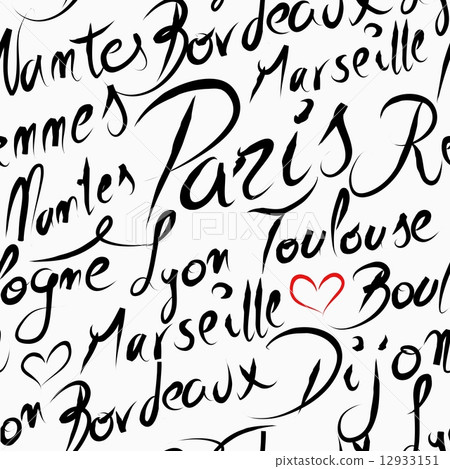 Nantes Bordeaux
Marseille
ennes Paris Re
Nantes
logne Lyon Toulouse
Marseille Boul
on Bordeaux Dijon
PIXTA
pixta.jp - 12933151